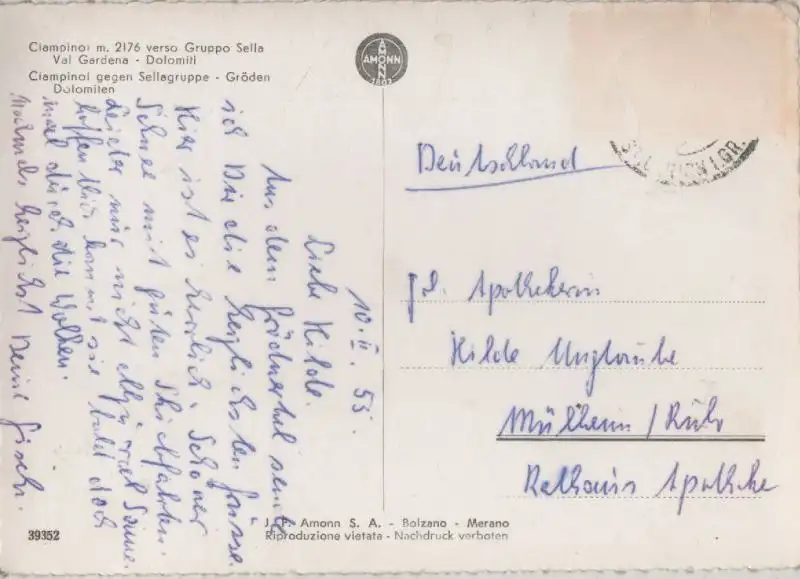 Ciampinoi m. 2176 verso Gruppo Sella
Val Gardena - Dolomiti
Ciampinoi gegen Sellagruppe - Gröden
Dolomiten
AMONN
AMONN
1802
10.II.55.
Liebe Hilde.
Aus dem Grödnertal sende
ich Dir die herzlichsten Grüsse.
Hier ist es herrlich, schöner
Schnee mit guten Skiabfahrten.
Leider nur nicht allzuviel Sonne.
hoffentlich kommt sie bald doch
mal durch die Wolken.
Nochmals herzlichst Deine
Deutschland
Apothekerin
Hilde
Mülheim/Ruhr
Rathaus Apotheke
J. F. Amonn S. A. - Bolzano - Merano
Riproduzione vietata - Nachdruck verboten
39352